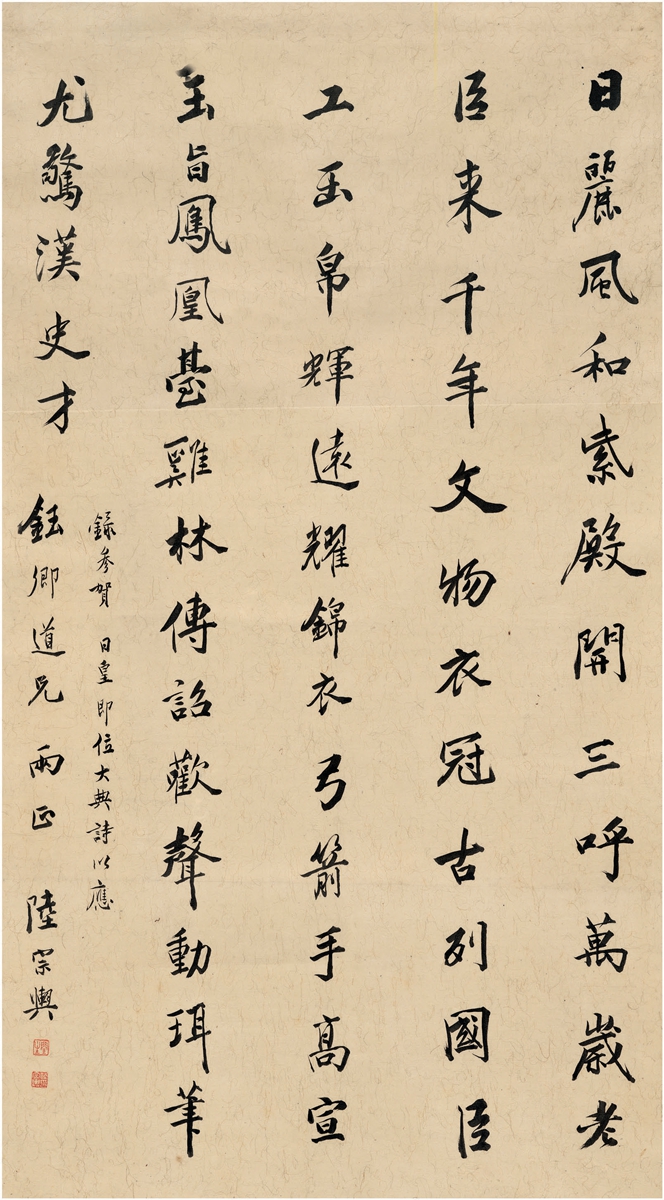 日麗風和紫殿開三呼萬歲老
臣来千年文物衣冠古列國臣
工玉帛輝遠耀錦衣弓箭手高宣
玉旨鳳凰臺雞林傳詔歡聲動珥筆
尤驚漢史才
錄參賀 日皇即位大典詩以應
鈺卿道兄兩正 陸宗輿